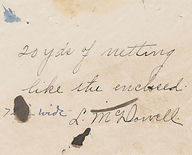 20 yds of netting
like the enclosed.
wide
L. McDowell.